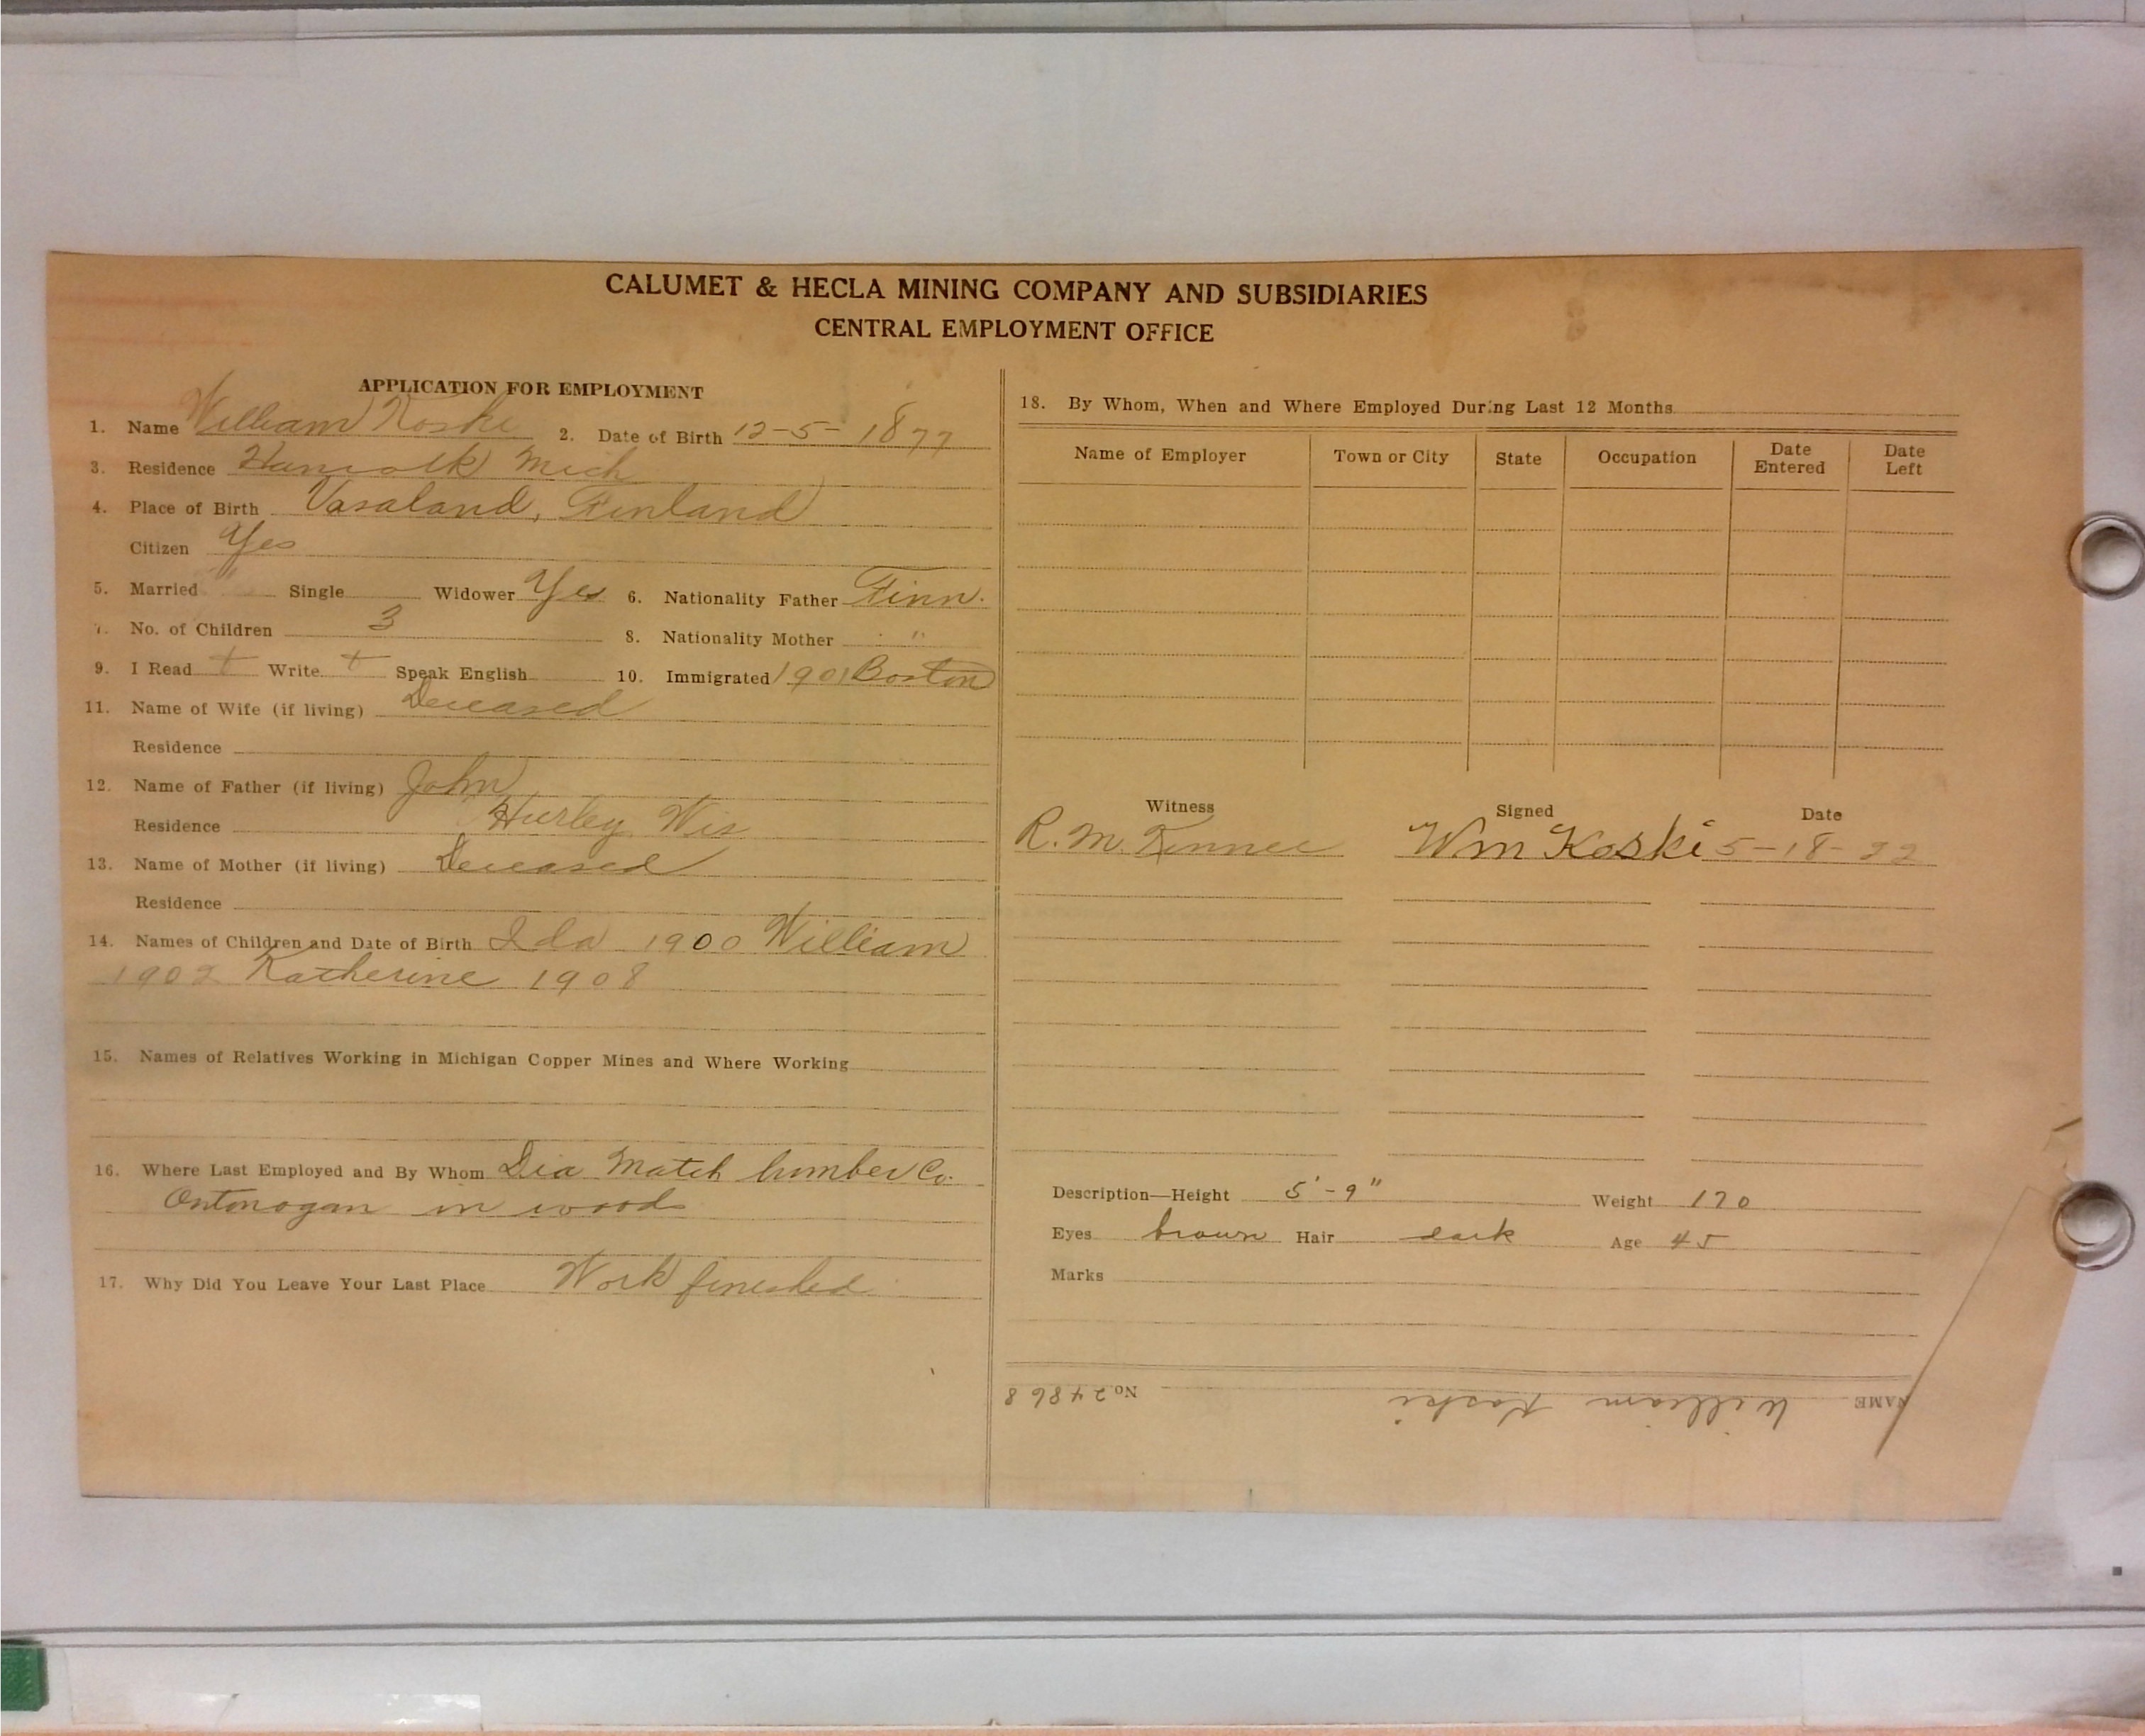 CALUMET & HECLA MINING COMPANY AND SUBSIDIARIES
CENTRAL EMPLOYMENT OFFICE
APPLICATION FOR EMPLOYMENT
1. Name William Koski 2. Date of Birth 12-5-1877
3. Residence Hancock Mich
4. Place of Birth Vasaland, Finland
Citizen Yes
5. Married Single Widower Yes 6. Nationality Father Finn.
7. No. of Children 3 8. Nationality Mother "
9. I Read + Write + Speak English 10. Immigrated 1901 Boston
11. Name of Wife (if living) Deceased
Residence
12. Name of Father (if living) John
Residence Hurley Wis
13. Name of Mother (if living) Deceased
Residence
14. Names of Children and Date of Birth Ida 1900 William
1902 Katherine 1908
15. Names of Relatives Working in Michigan Copper Mines and Where Working
16. Where Last Employed and By Whom Dia Match lumber Co.
Ontonogan in woods
17. Why Did You Leave Your Last Place Work finished
18. By Whom, When and Where Employed During Last 12 Months
Name of Employer Town or City State Occupation Date Entered Date Left
Witness Signed Date
R. M. Wm Koski 5-18-22
Description—Height 5'-9" Weight 170
Eyes brown Hair dark Age 45
Marks
NAME William Koski No 24868